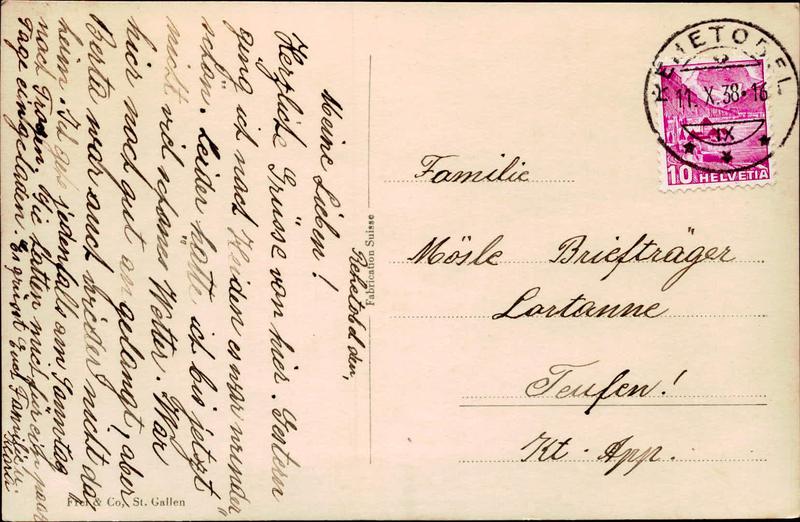 Rehetobel den,
Meine Lieben!
Herzliche Grüsse von hier. Gestern
ging ich nach Heiden es war wunder
schön. Leider hatte ich bis jetzt
nicht viel schönes Wetter. War
hier noch gut angelangt, aber
Berta war auch wieder nicht da-
heim. Ich gehe jedenfalls am Samstag
nach Trogen. Sie hatten mich für ein paar
Tage eingeladen. Es grüsst Euch Familie
Fabrication Suisse
Frei & Co., St. Gallen
REHETOBEL
11. X. 38-16
IX
10 HELVETIA
Familie
Mösle Briefträger
Lortanne
Teufen!
Kt. App.